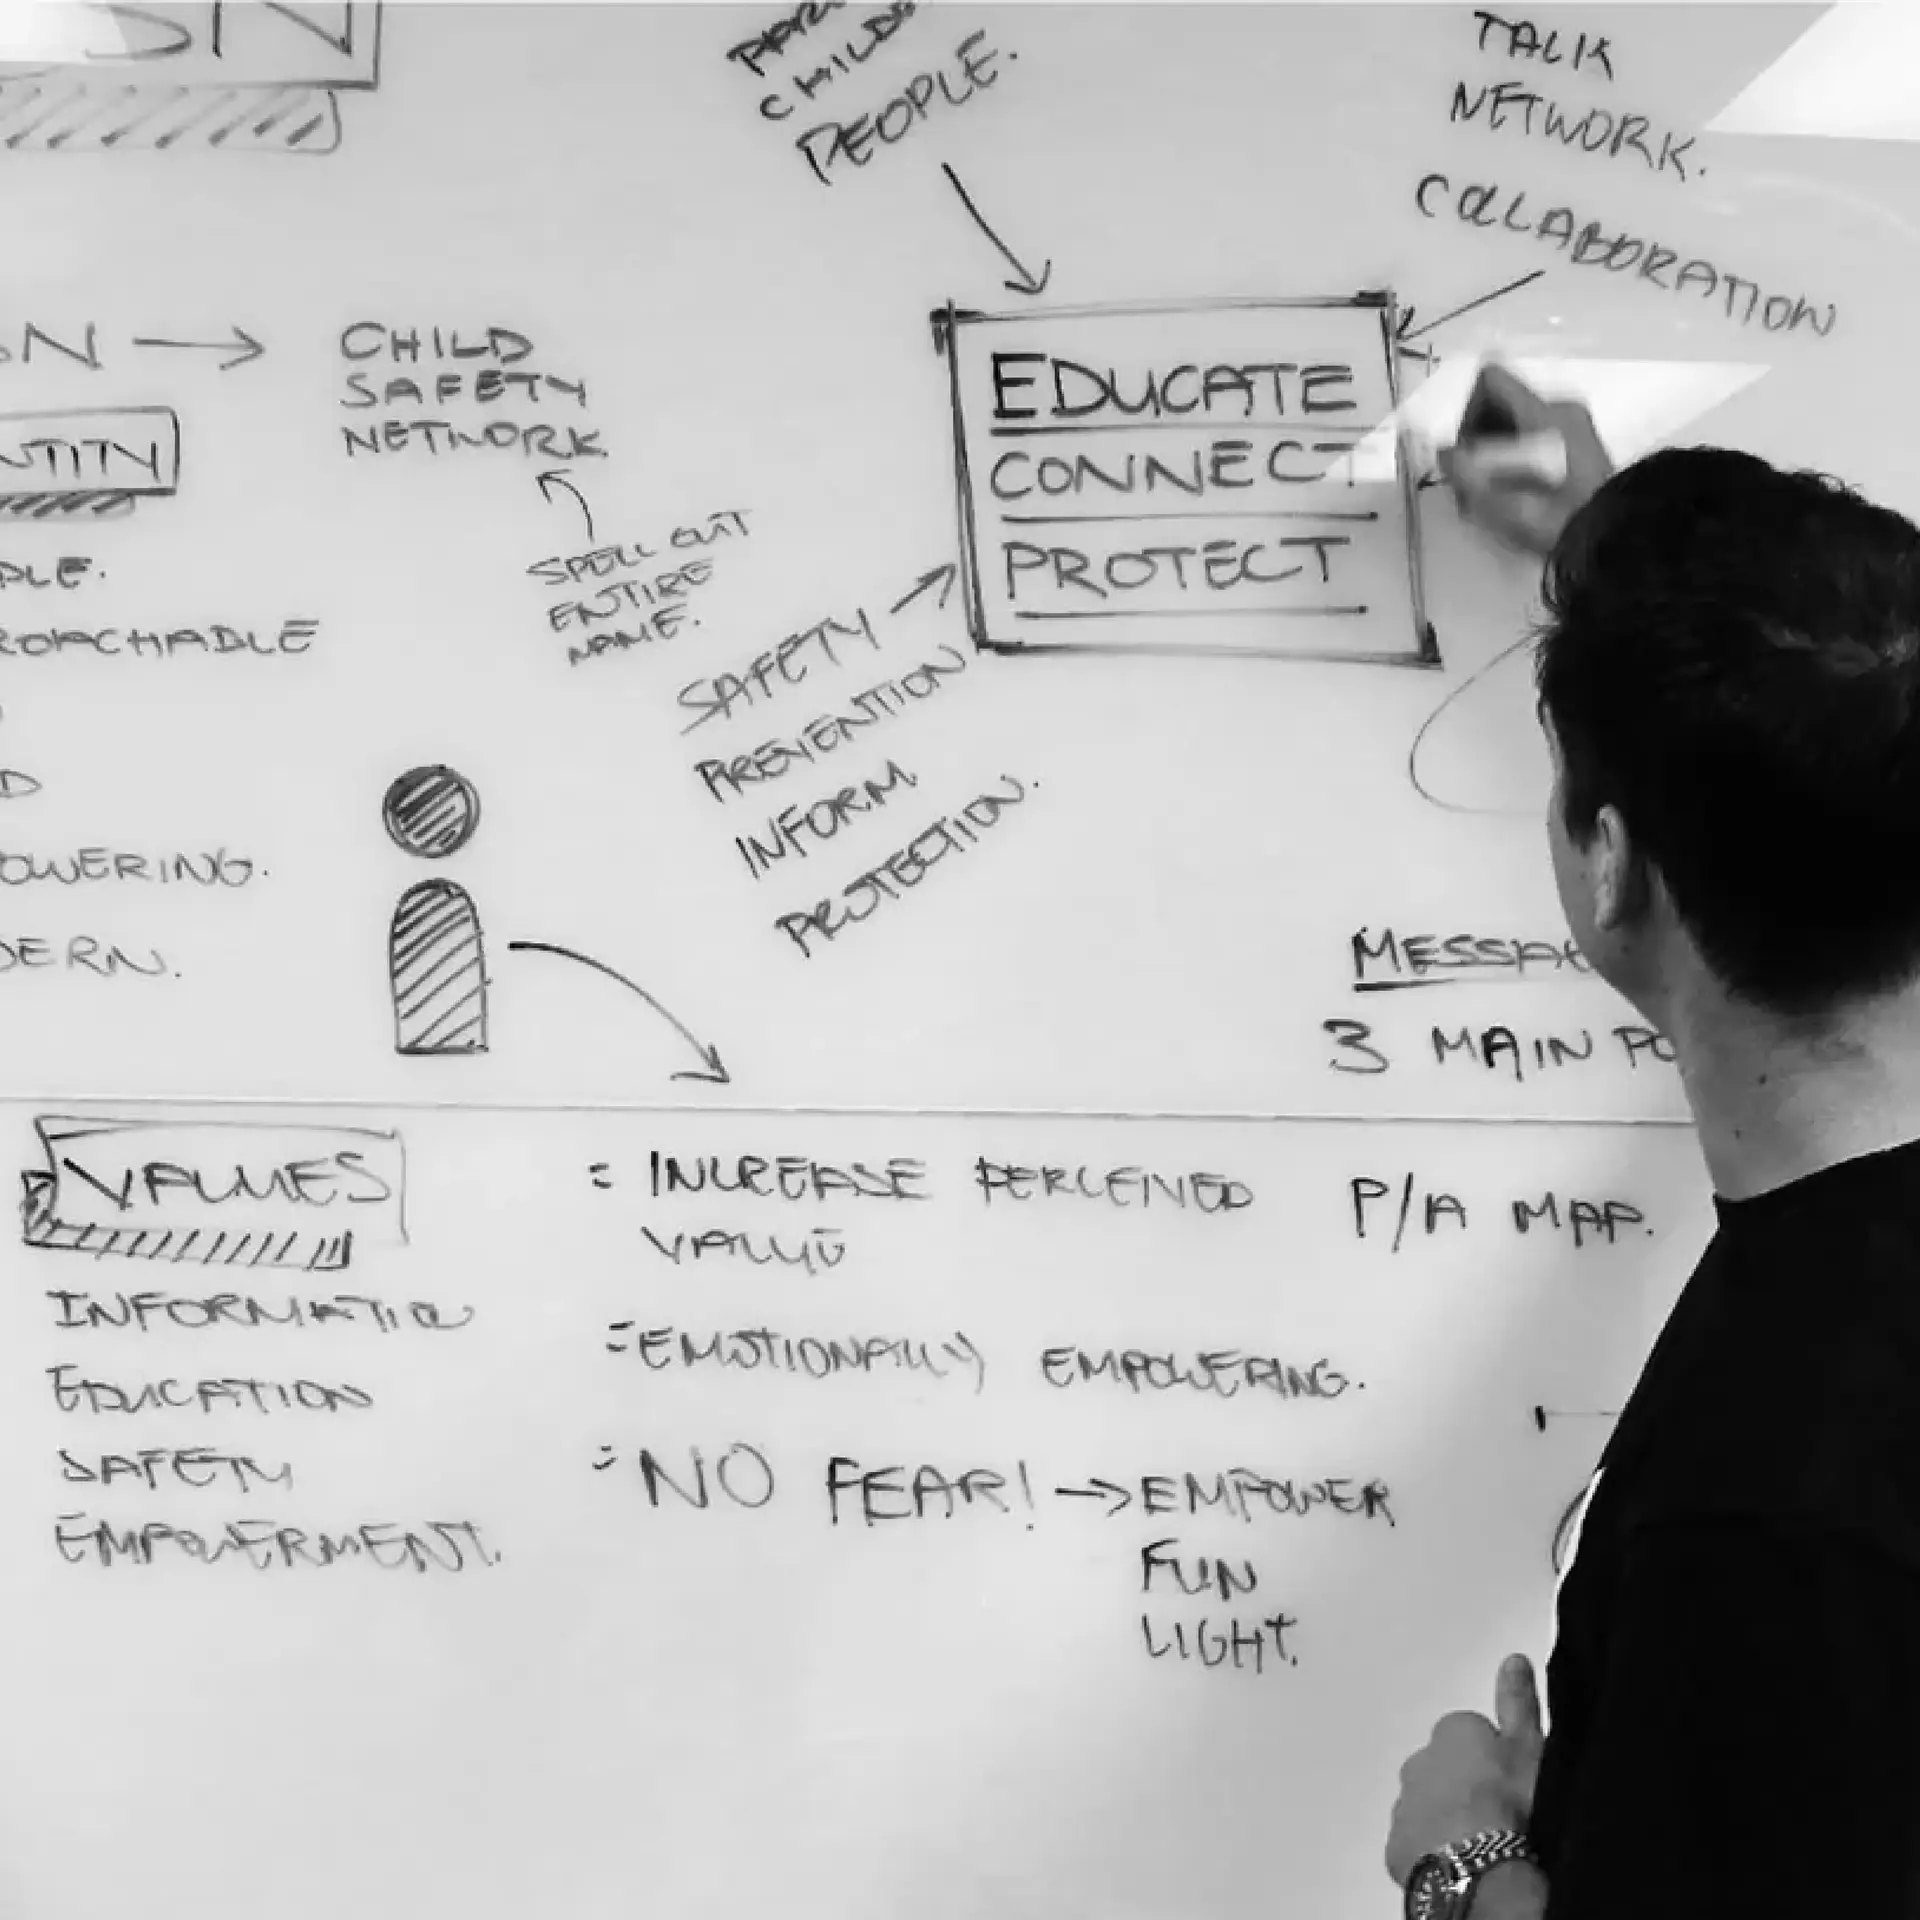 SN
CHILD
PEOPLE.
TALK
NETWORK.
COLLABORATION
SN → CHILD
SAFETY
NETWORK
NTITY
SPELL OUT
ENTIRE
NAME.
EDUCATE
CONNECT
PROTECT
PLE.
ROACHABLE
D
OWERING.
DERN.
SAFETY
PREVENTION
INFORM
PROTECTION.
MESSAG
3 MAIN PO
VALUES
INFORMATIO
EDUCATION
SAFETY
EMPOWERMENT.
= INCREASE PERCEIVED
VALUE
= EMOTIONALLY EMPOWERING.
= NO FEAR! → EMPOWER
FUN
LIGHT.
P/A MAP.